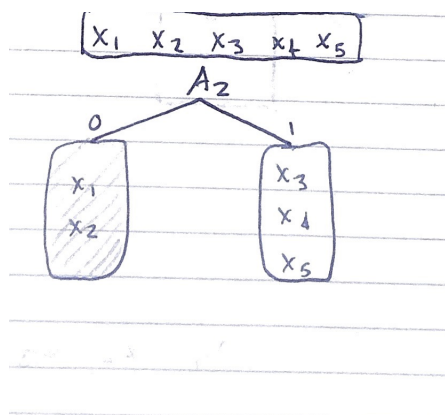 x₁ x₂ x₃ x₄ x₅
A₂
0 1
x₁ x₃
x₂ x₄
x₅